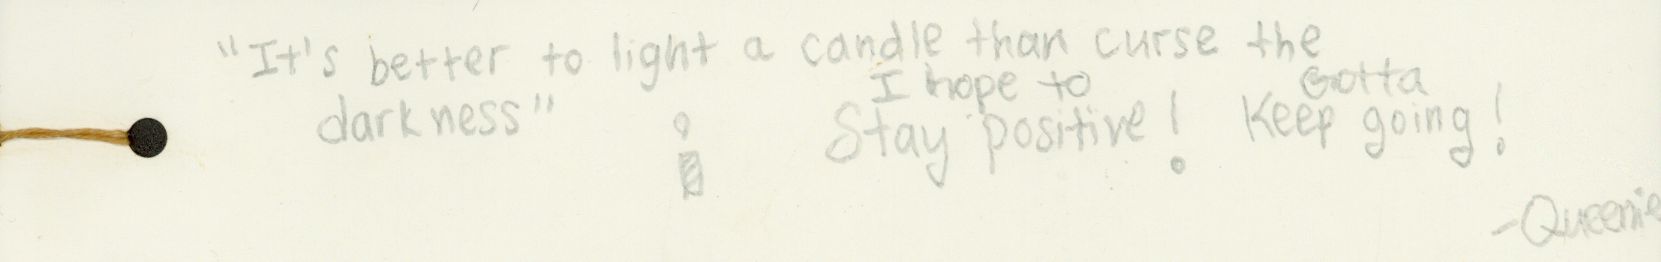 "It's better to light a candle than curse the
darkness"
I hope to
Stay positive!
Gotta
Keep going!
-Queenie